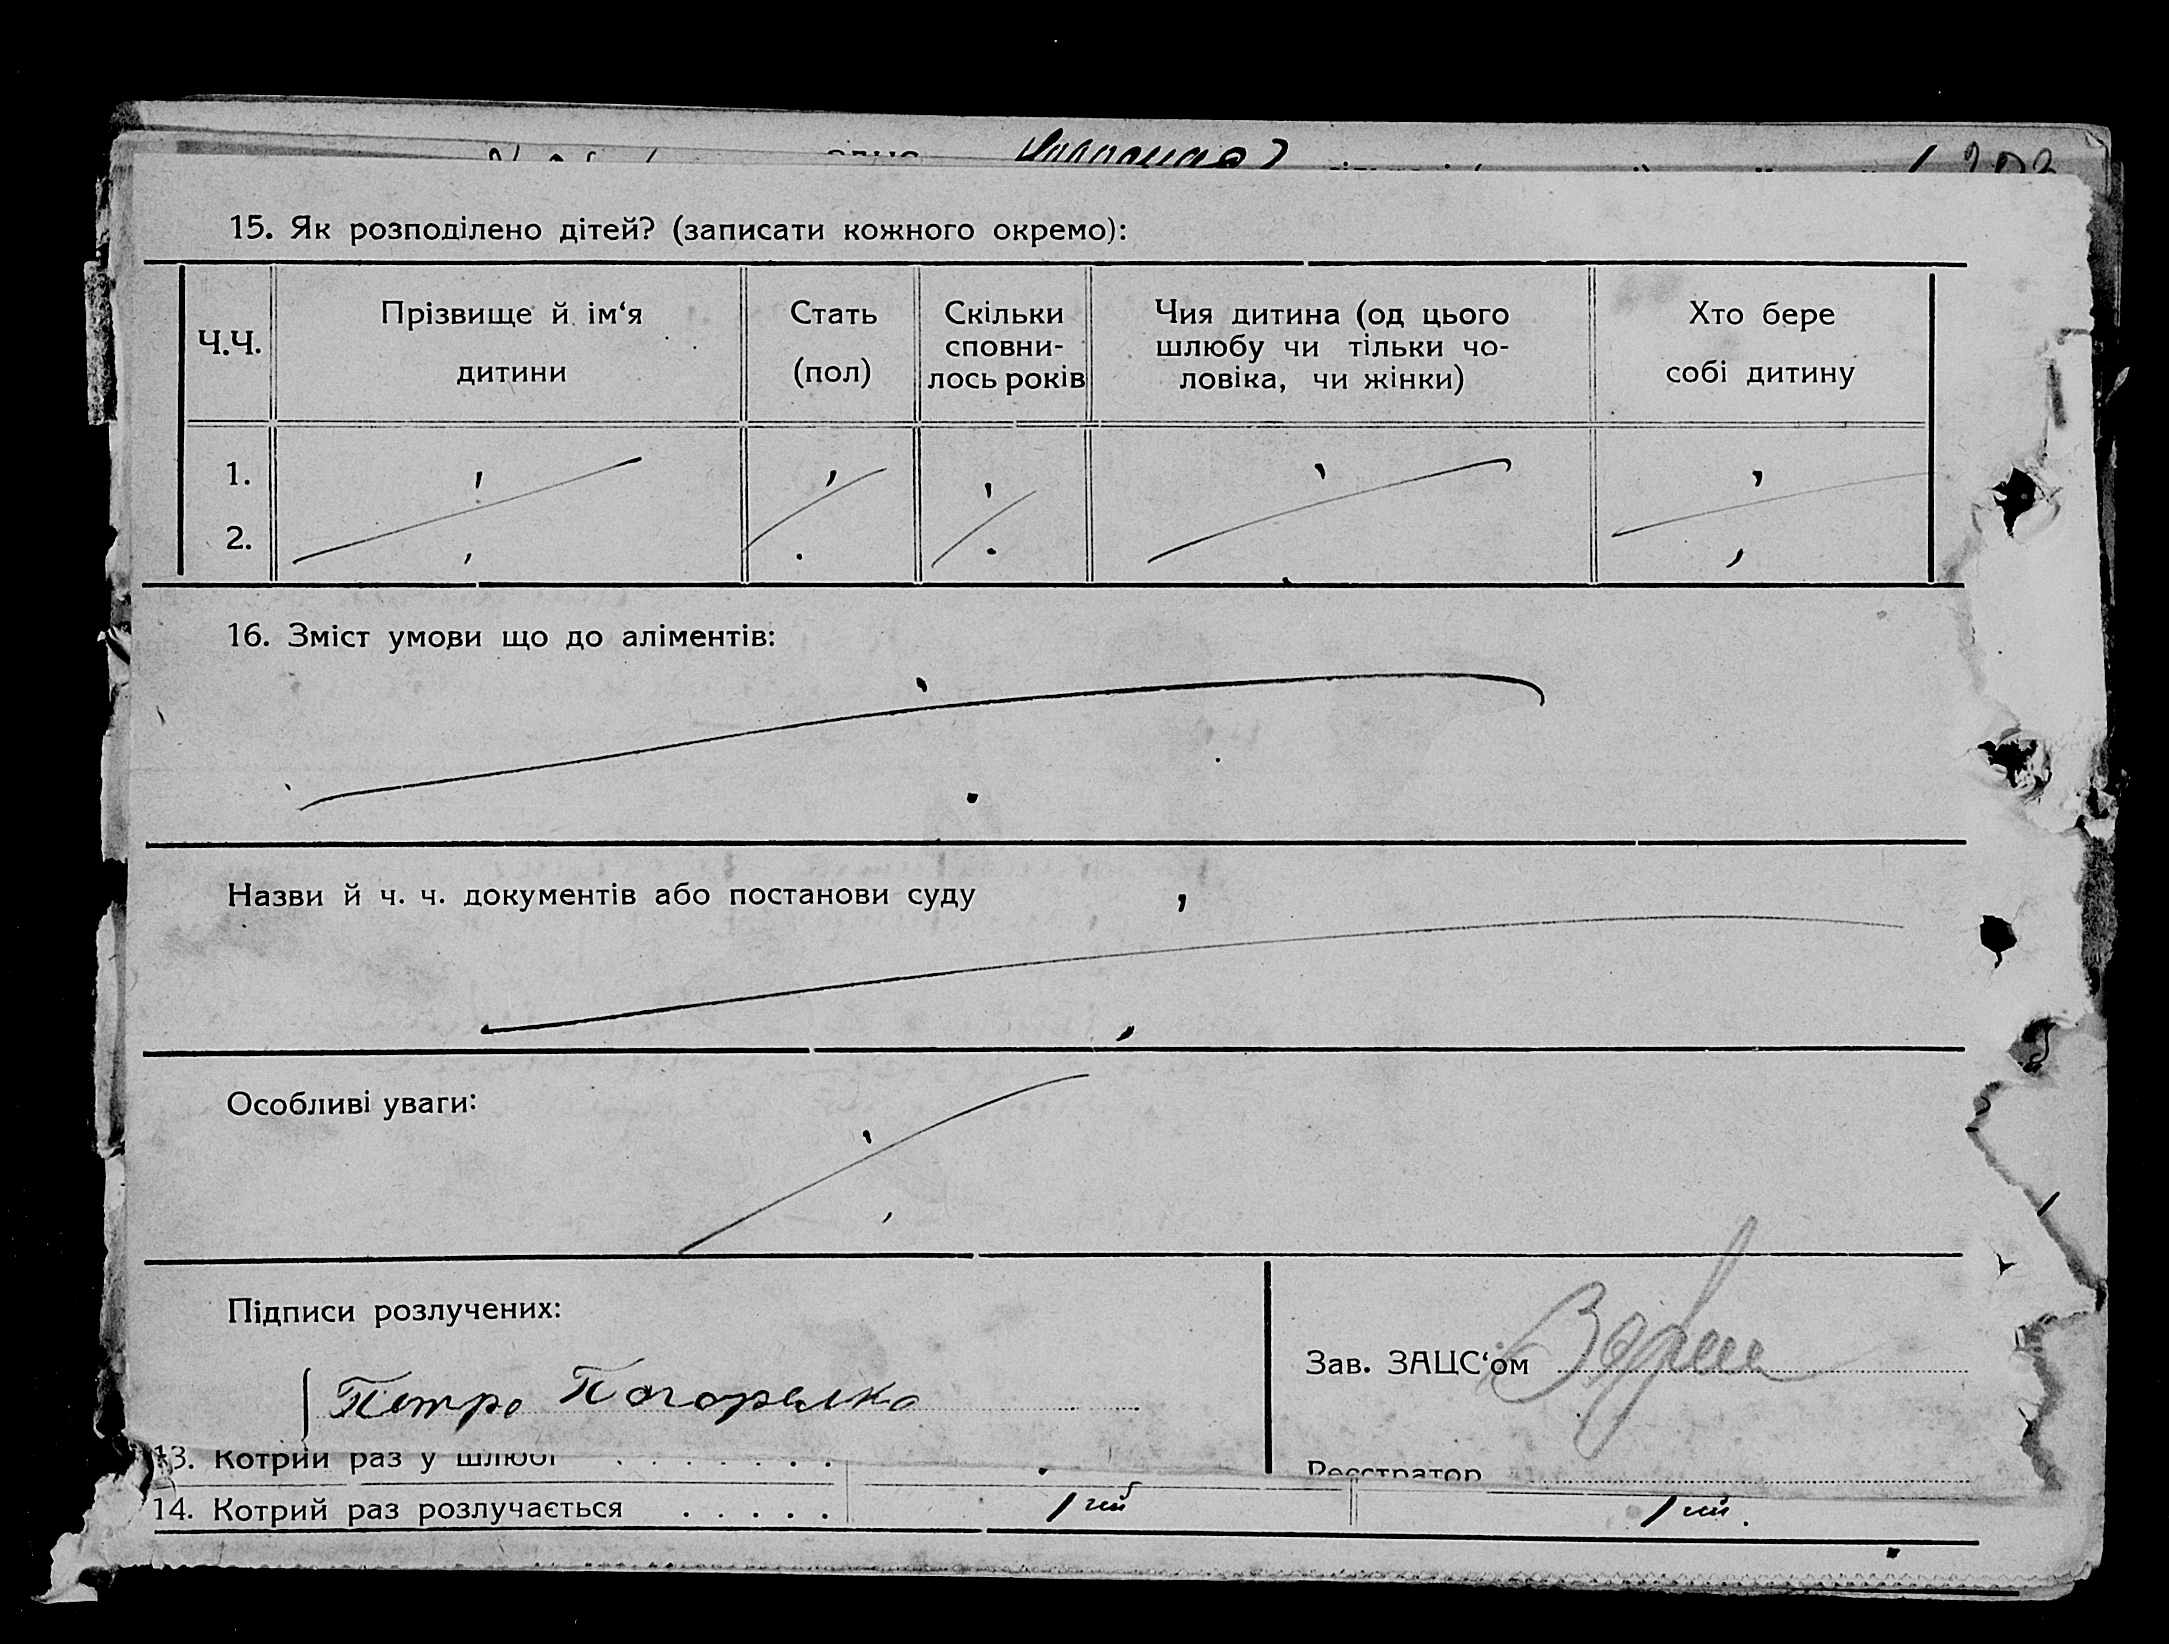 15. Як розподілено дітей? (записати кожного окремо):
Ч.Ч.
Прізвище й ім‘я
дитини
Стать
(пол)
Скільки
сповни-
лось років
Чия дитина (од цього
шлюбу чи тільки чо-
ловіка, чи жінки)
Хто бере
собі дитину
1.
2.
16. Зміст умови що до аліментів:
Назви й ч. ч. документів або постанови суду
Особливі уваги:
Підписи розлучених:
Петро Погорелко
Зав. ЗАЦС‘ом
Реєстратор
13. Котрий раз у шлюбі . . . . . . .
14. Котрий раз розлучається . . . . . 1ий 1ий.